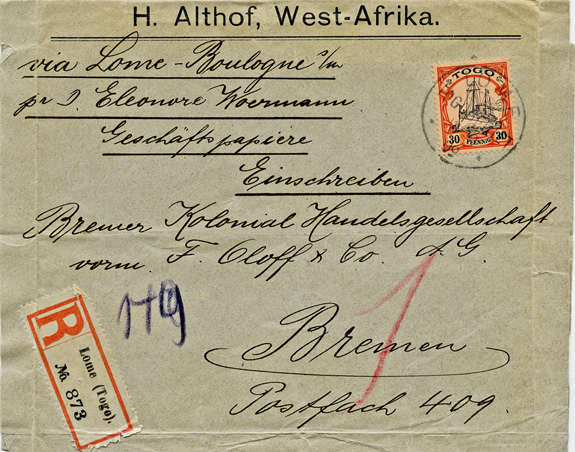 H. Althof, West-Afrika.
via Lome-Boulogne s/m
pr D. Eleonore Woermann
Geschäftspapiere
Einschreiben
TOGO
30 30
PFENNIG
Bremer Kolonial Handelsgesellschaft
vorm. F. Oloff & Co. A.G.
Bremen
Postfach 409.
R
Lome (Togo).
No. 873